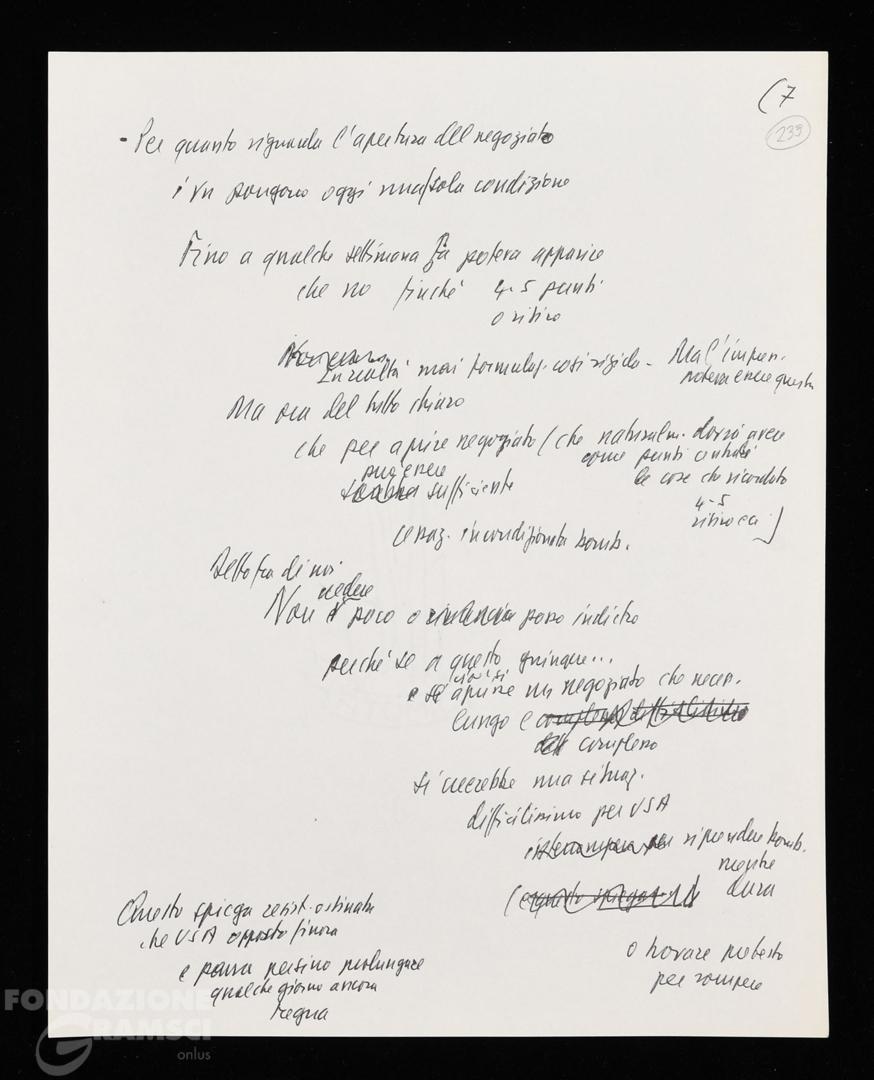 (7
239
- Per quanto riguarda l'apertura del negoziato
i VN pongono oggi una sola condizione
Fino a qualche settimana fa poteva apparire
che no finché 4-5 punti
o ritiro
In realtà mai formulaz. così rigida - Ma l'impres.
poteva essere questa
Ma ora del tutto chiaro
che per aprire negoziato (che naturalm. dovrà avere
come punti centrali
le cose che ricordato
4-5
ritiro ecc)
può essere
sufficiente
cessaz. incondizionata bomb.
Detto fra di noi
Non è poco vedere o passo indietro
perché se a questo giunge...
e si aprisse un negoziato che neces.
lungo e
complesso
si creerebbe una situaz.
difficilissima per USA
riprendere bomb.
mentre
dura
o trovare pretesto
per rompere
Questo spiega resist. ostinata
che USA opposto finora
e possa persino prolungare
qualche giorno ancora
tregua
FONDAZIONE
GRAMSCI
onlus